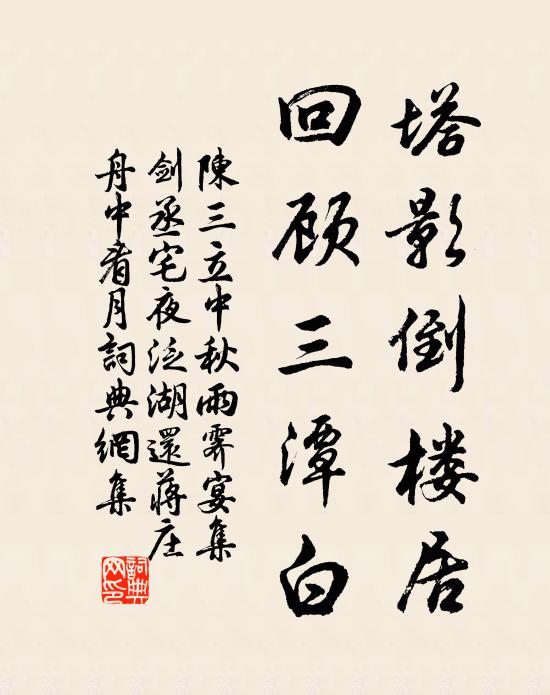 塔影倒楼居
回顾三潭白
陳三立中秋雨霽宴集
剑丞宅夜泛湖還蔣庄
舟中看月詞典網集
詞典网印